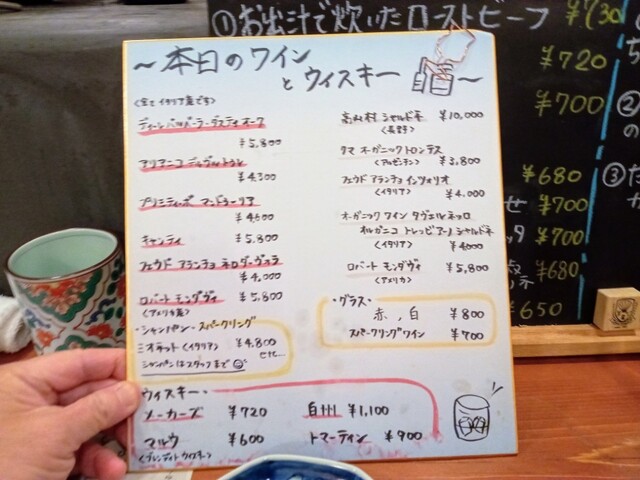 ①お出汁で炊いたローストビーフ ¥730
¥720
¥700
¥680
¥700
¥700
¥680
¥650
②
③
～本日のワイン
とウィスキー～
〈全てイタリア産です〉
¥5,800
アリアニコ デル
¥4,300
プリミティーボ マンドゥーリア
¥4,600
キャンティ ¥5,800
フェウド アランチョ ネロ・ダーヴォラ
¥4,000
ロバート モンダヴィ ¥5,800
(アメリカ産)
・シャンパン・スパークリング
ミオネット〈イタリア〉 ¥4,800
etc…
シャンパンはスタッフまで
高山村 シャルドネ ¥10,000
〈長野〉
オーガニック トロンテス
〈アルゼンチン〉 ¥3,800
フェウド アランチョ インツォリオ
〈イタリア〉 ¥4,000
オーガニック ワイン タヴェルネッロ
オルガニコ トレッビアーノ シャルドネ
〈イタリア〉 ¥4000
ロバート モンダヴィ ¥5,800
〈アメリカ〉
・グラス・
赤、白 ¥800
スパークリングワイン ¥700
ウィスキー・
メーカーズ ¥720
白州 ¥1,100
マルウ ¥600
トマーティン ¥900
〈ブレンディドウイスキー〉